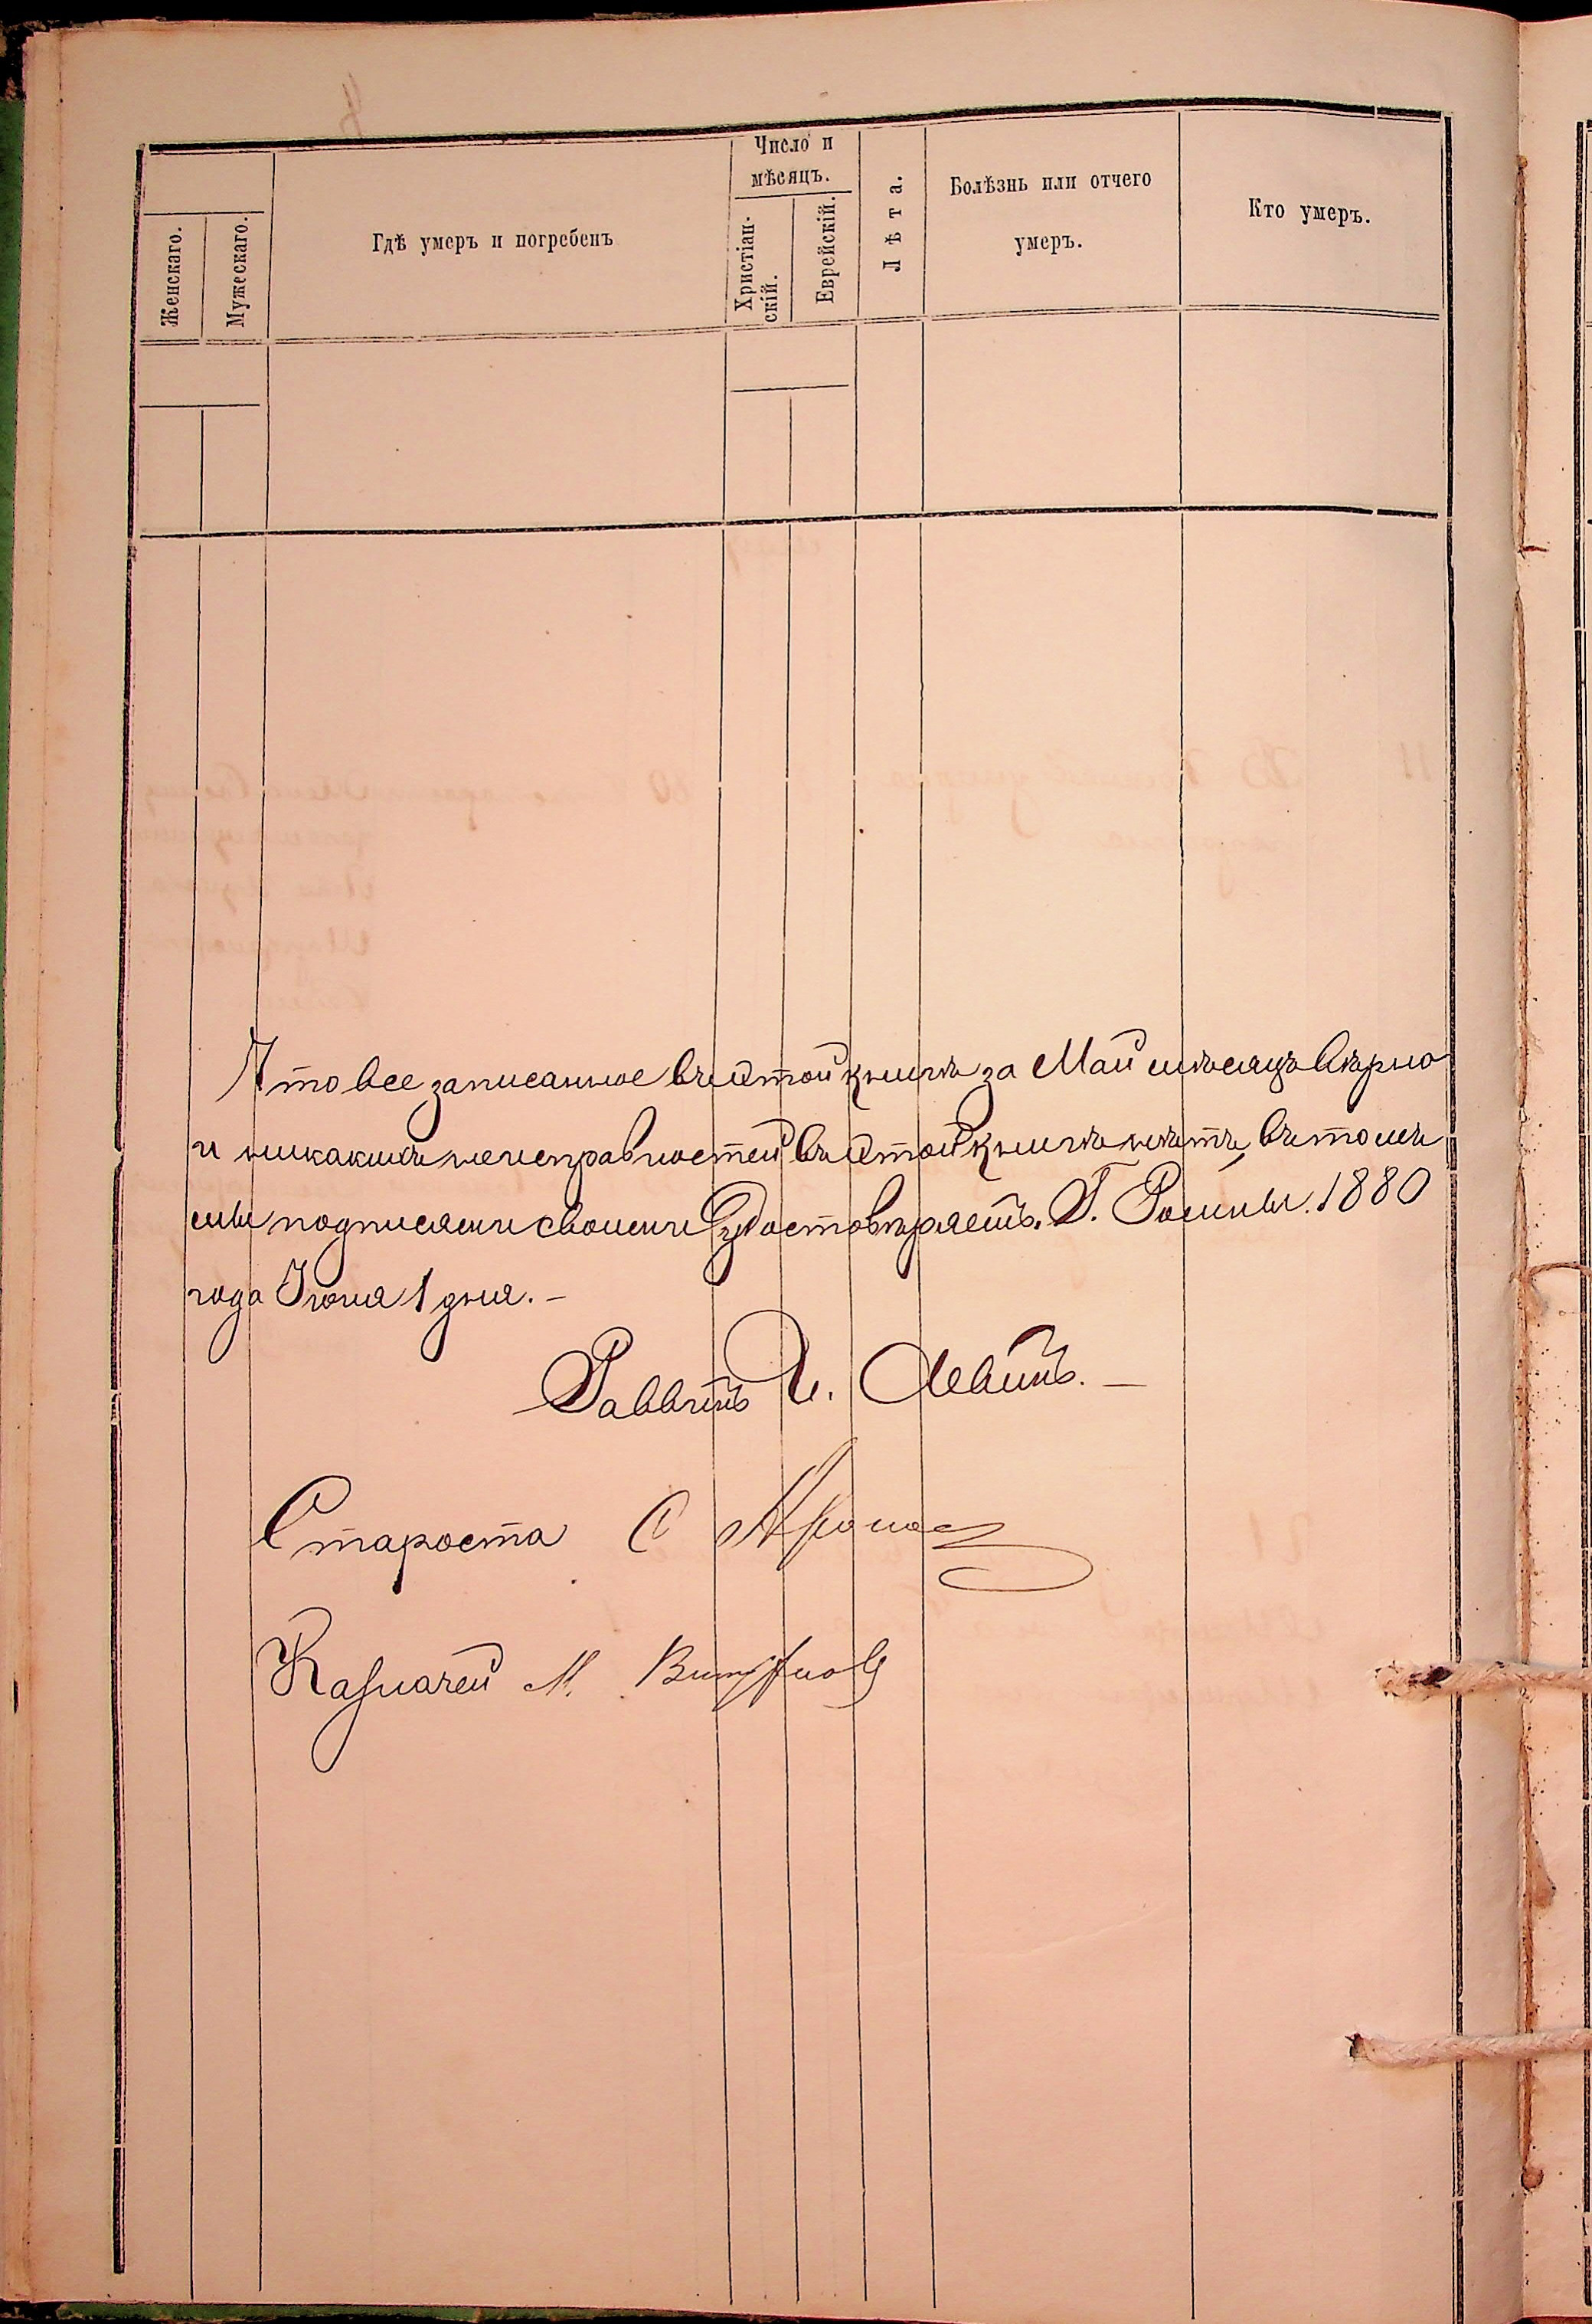 Женскаго.
Мужескаго.
Гдѣ умеръ и погребенъ
Число и
мѣсяцъ.
Христіан-
скій.
Еврейскій.
Лѣта.
Болѣзнь или отчего
умеръ.
Кто умеръ.
Что все записанное въ этой книгѣ за Май мѣсяцъ вѣрно
и никакихъ неисправностей въ этой книгѣ нѣтъ, въ томъ
мы подписями своими удостовѣряемъ. Г. Ромны. 1880
года Іюня 1 дня. –
Раввинъ И. Левинъ. –
Староста С
Казначей М.